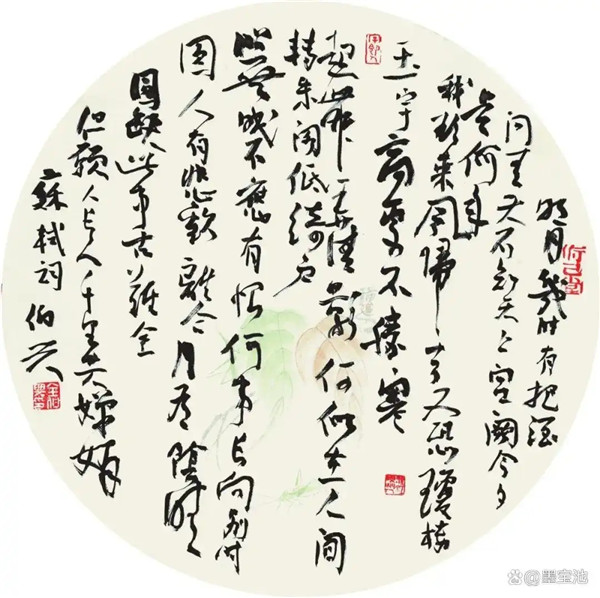 明月幾时有把酒
问青天不知天上宫阙今夕
是何年
我欲乘风归去又恐瓊楼
玉宇高處不勝寒
起舞弄清影何似在人间
转朱阁低绮户
照無眠不應有恨何事长向别时
圆人有悲歡離合月有陰晴
圆缺此事古難全
但願人长久千里共嬋娟
蘇軾词 伯兴
@墨宝池